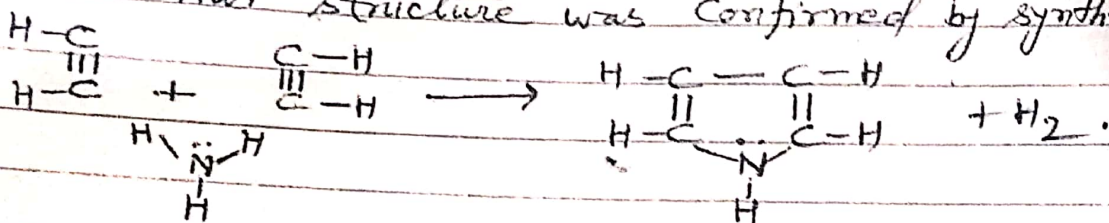 structure was Confirmed by synth
H-C≡C-H + H-C≡C-H + :NH3 ⟶ H-C=C-H H-C=C-H N̈-H + H2.